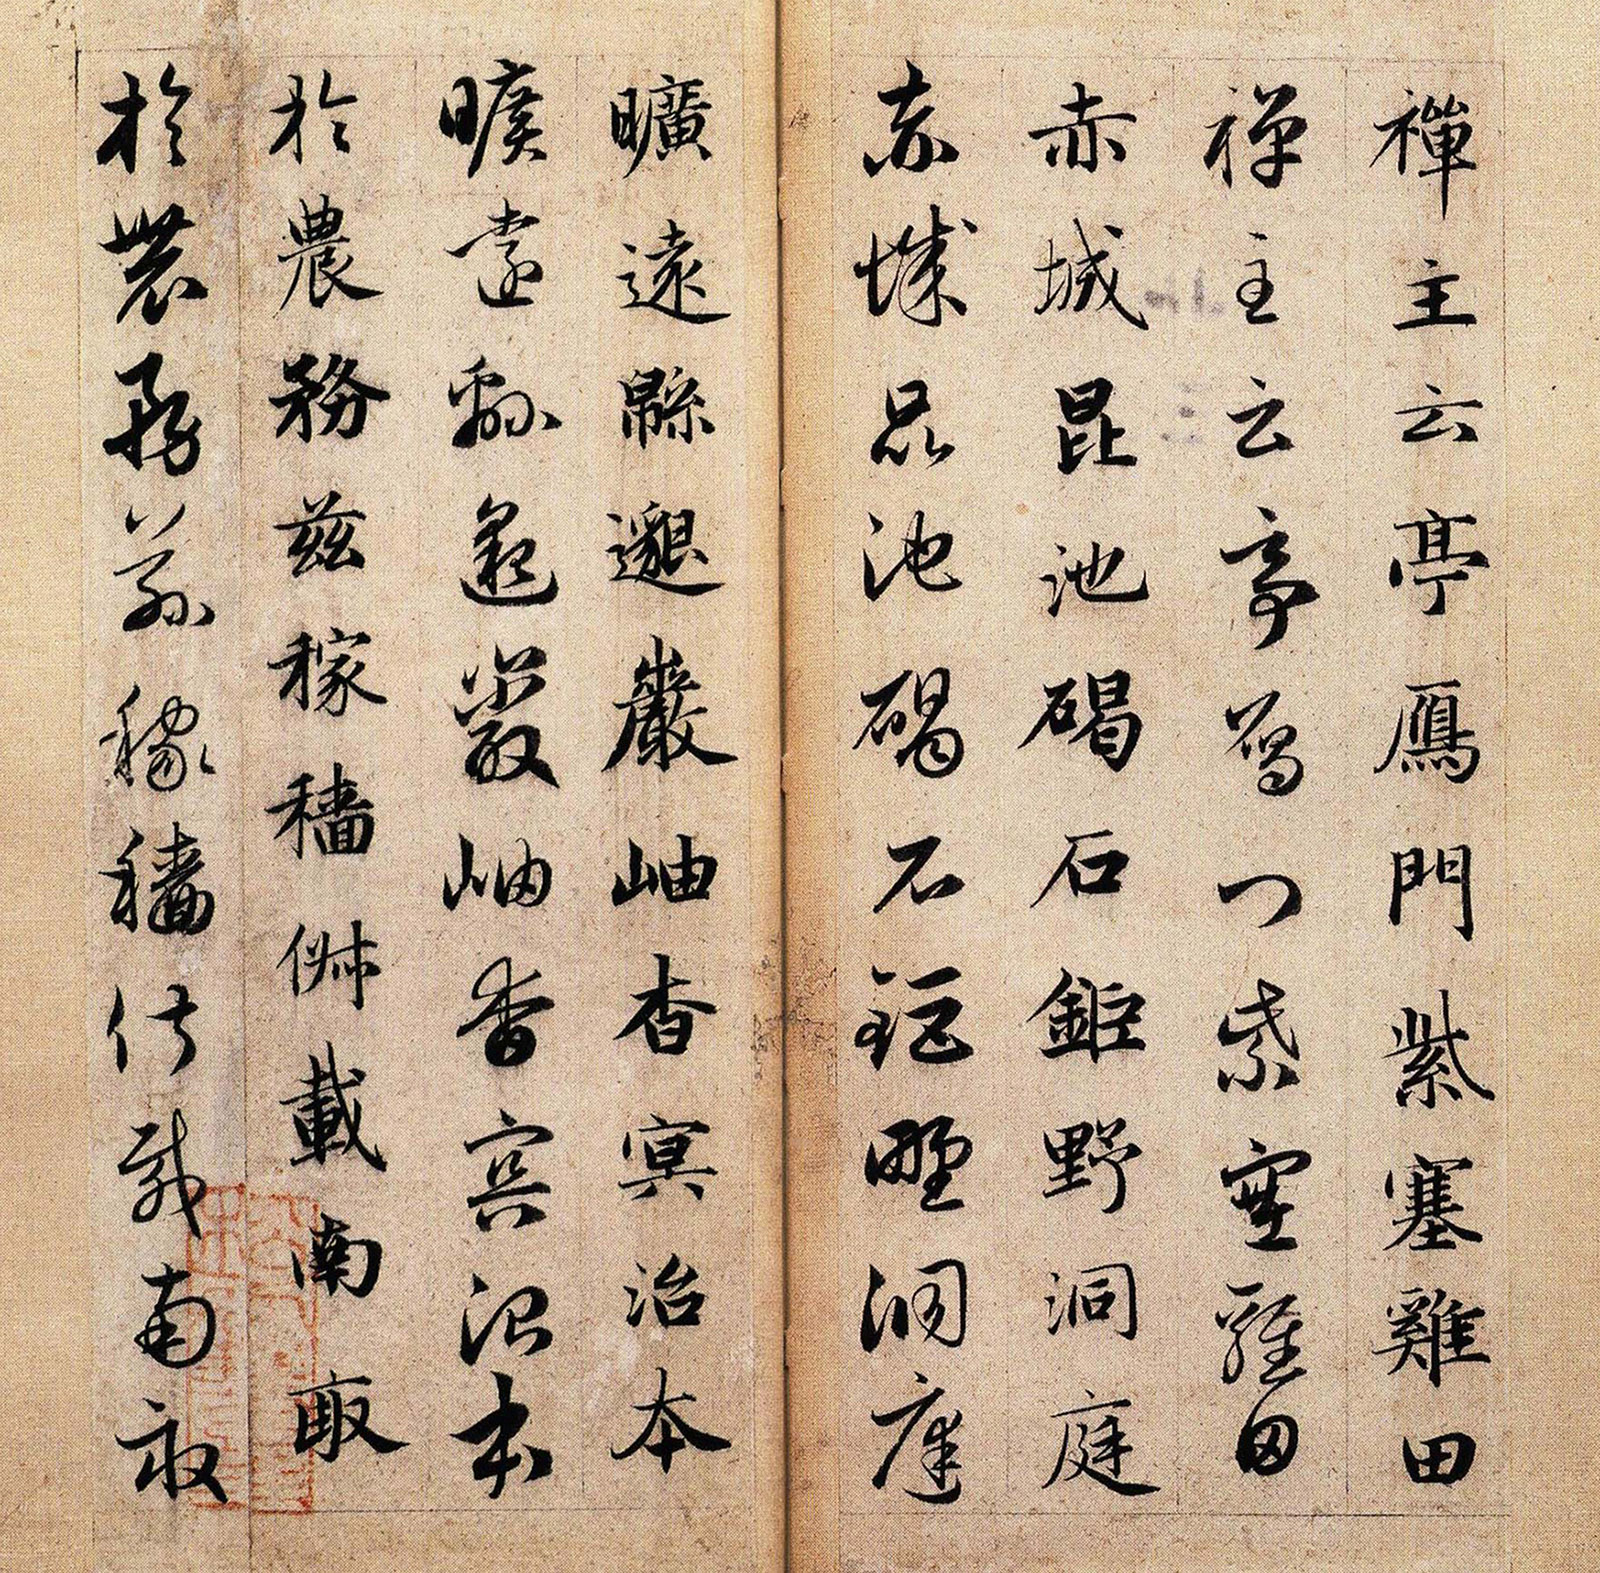 禪主云亭鴈門紫塞雞田
禪主云亭鴈門紫塞雞田
赤城昆池碣石鉅野洞庭
赤城昆池碣石鉅野洞庭
曠遠緜邈巖岫杳冥治本
曠遠緜邈巖岫杳冥治本
於農務茲稼穡俶載南畝
於農務茲稼穡俶載南畝